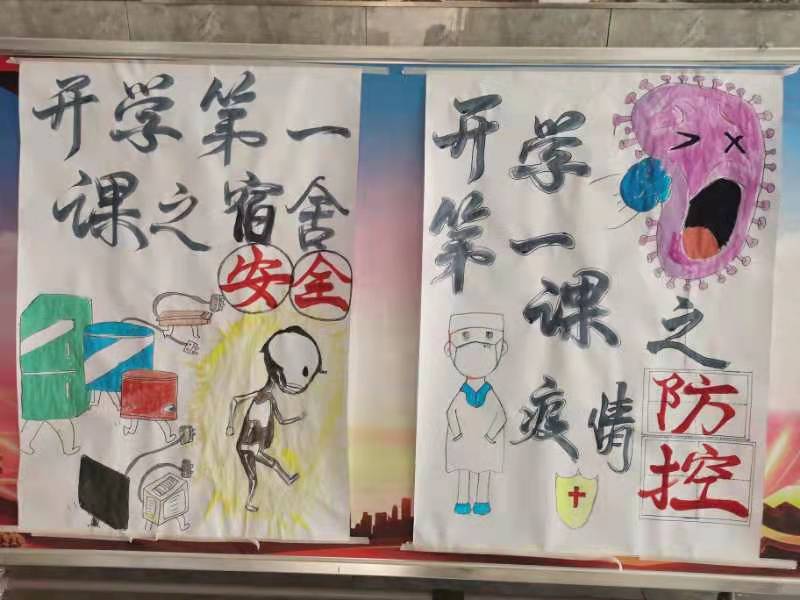 开学第一
课之宿舍
安全
开学
第一
课之
疫情
防
控